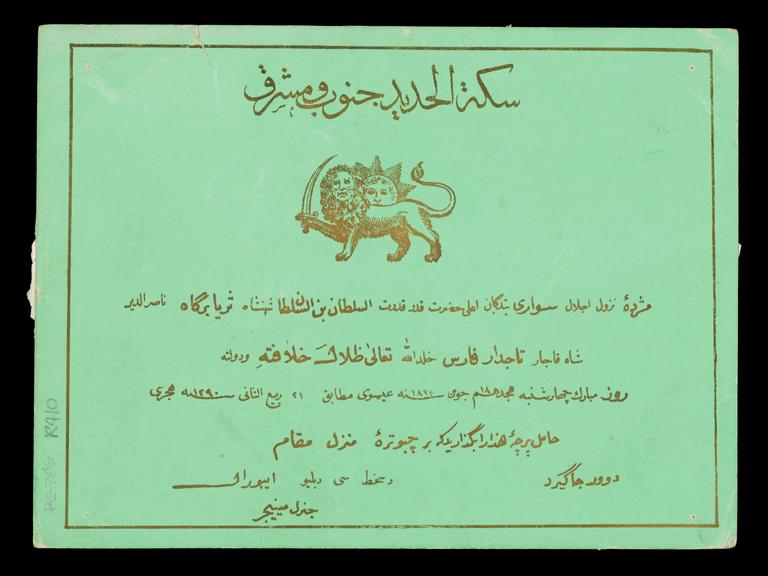 سكة الحديد جنوب و مشرق
مژدهٔ نزول اجلال سواری بندگان اعلی حضرت قدر قدرت السلطان بن السلطان شهنشاه ثریا برگاه ناصر الدین
شاه قاجار تاجدار فارس خلد الله تعالی ظلال خلافته ودولته
روز مبارك چهارشنبه هجدهم ١٨ جون سنه ١٨٧٣ عیسوی مطابق ٢١ ربیع الثانی سنه ١٢٩٠ هجری
حامل پرچهٔ هذا را بگذارید که بر چبوترهٔ منزل مقام
دوور جا گیرد
دستخط سی دبلیو ایبورال
جنرل مینیجر
R910